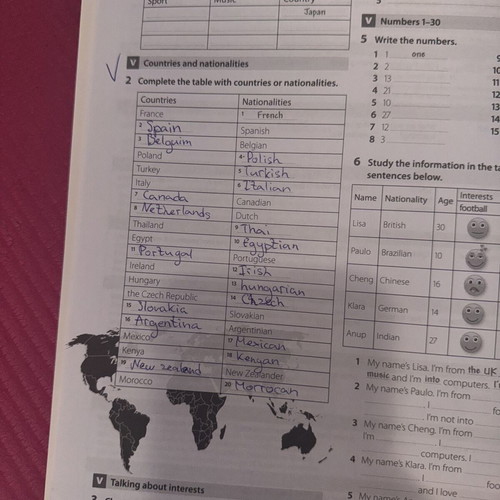 Sport Music Country
Japan
V Countries and nationalities
2 Complete the table with countries or nationalities.
Countries Nationalities
France 1 French
2 Spain Spanish
3 Belguim Belgian
Poland 4 Polish
Turkey 5 Turkish
Italy 6 Italian
7 Canada Canadian
8 Netherlands Dutch
Thailand 9 Thai
Egypt 10 Egyptian
11 Portugal Portuguese
Ireland 12 Irish
Hungary 13 hungarian
the Czech Republic 14 Chzech
15 Slovakia Slovakian
16 Argentina Argentinian
Mexico 17 Mexican
Kenya 18 Kenyan
19 New zealand New Zealander
Morocco 20 Morrocan
V Talking about interests
V Numbers 1–30
5 Write the numbers.
1 1 one
2 2
3 13
4 21
5 10
6 27
7 12
8 3
9
10
11
12
13
14
15
6 Study the information in the
sentences below.
Name Nationality Age Interests
football
Lisa British 30
Paulo Brazilian 10
Cheng Chinese 16
Klara German 14
Anup Indian 27
1 My name's Lisa. I'm from the UK.
music and I'm into computers.
2 My name's Paulo. I'm from
I
I'm not into
3 My name's Cheng. I'm from
I'm I
computers. I
4 My name's Klara. I'm from
I
and I love
5 My